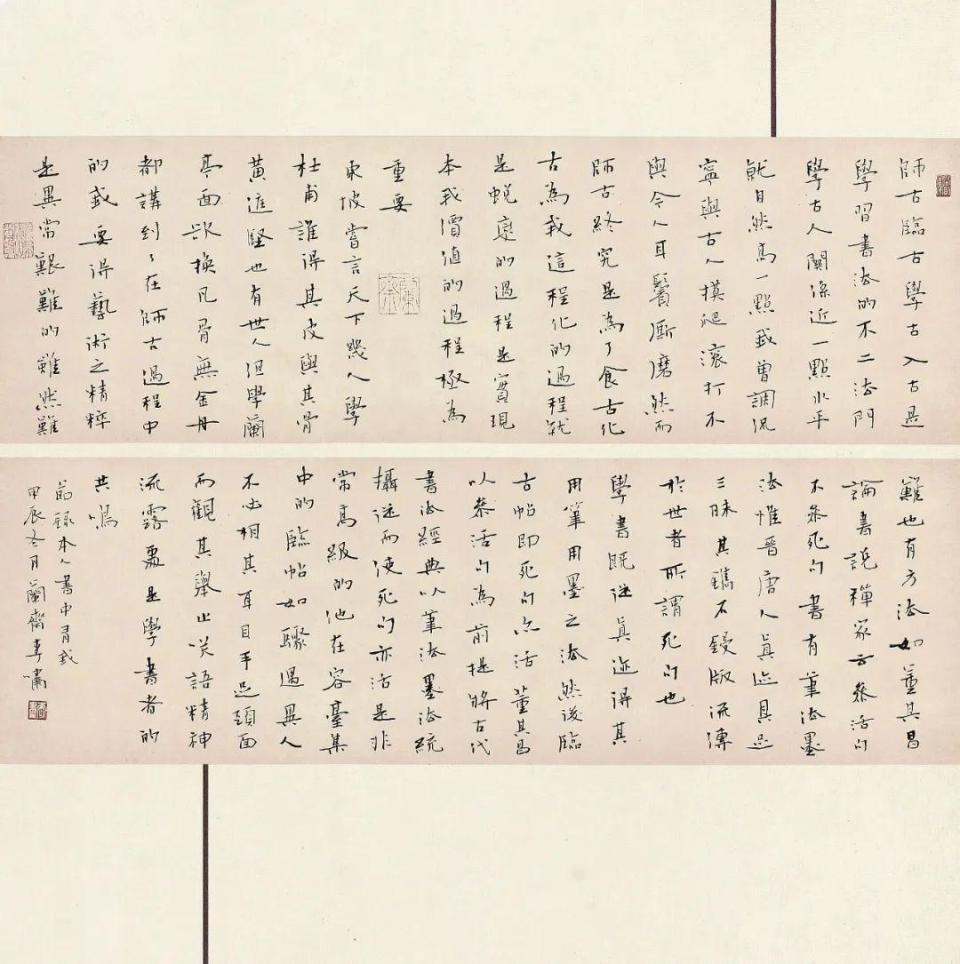 師古臨古學古入古是
學習書法的不二法門
學古人關係近一點水平
就自然高一點我曾調侃
寧與古人摸爬滾打不
與今人耳鬢廝磨然而
師古終究是為了食古化
古為我這程化的過程就
是蛻變的過程是實現
本我價值的過程極為
重要
東坡嘗言天下幾人學
杜甫誰得其皮與其骨
黃庭堅也有世人但學蘭
亭面欲換凡骨無金丹
都講到了在師古過程中
的我要得藝術之精粹
是異常艱難的雖然難
難也有方法如董其昌
論書說禪家云參活句
不參死句書有筆法墨
法惟晉唐人真迹具足
三昧其鐫石鋟版流傳
於世者所謂死句也
學書既從真迹得其
用筆用墨之法然後臨
古帖即死句亦活董其昌
以參活句為前提將古代
書法經典以筆法墨法統
攝從而使死句亦活是非
常高級的他在容臺集
中的臨帖如驟遇異人
不必相其耳目手足頭面
而觀其舉止笑語精神
流露處是學書者的
共鳴
節錄本人書中有我
甲辰冬月蘭齋李嘯